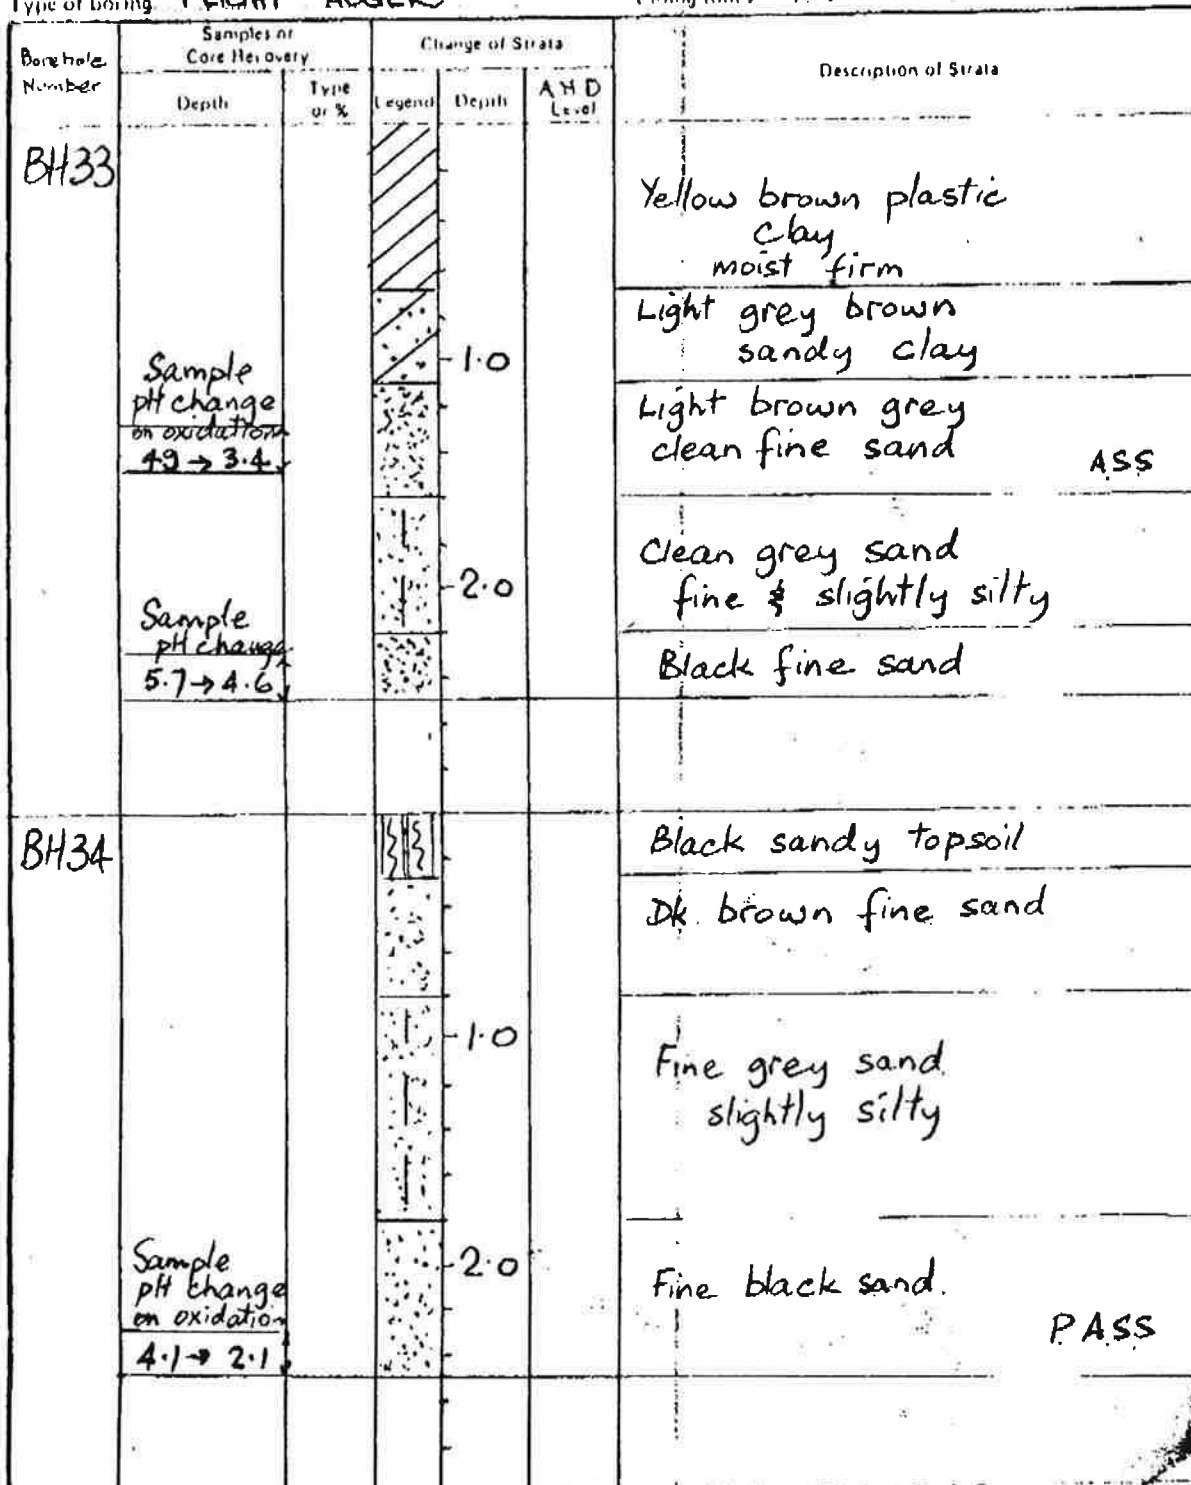 Type of boring FLIGHT AUGER
Samples or
Core Recovery
Change of Strata
Borehole
Number
Depth
Type
or %
Legend
Depth
A H D
Level
Description of Strata
BH33
Yellow brown plastic
clay
moist firm
Light grey brown
sandy clay
1.0
Sample
pH change
on oxidation
4.9 → 3.4
Light brown grey
clean fine sand
ASS
Clean grey sand
fine & slightly silty
2.0
Sample
pH change
5.7 → 4.6
Black fine sand
BH34
Black sandy topsoil
Dk. brown fine sand
1.0
Fine grey sand
slightly silty
2.0
Sample
pH change
on oxidation
4.1 → 2.1
Fine black sand.
PASS